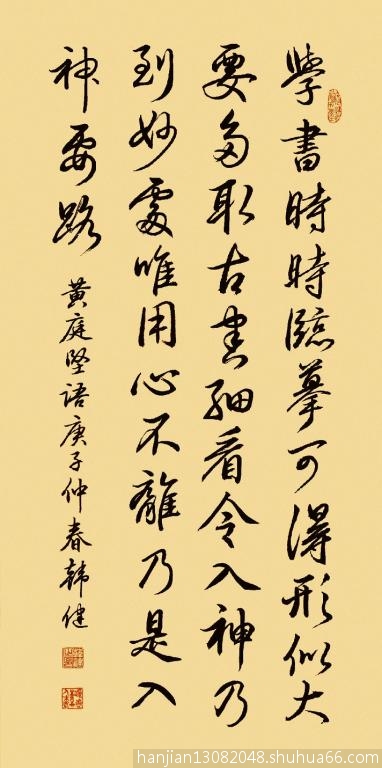 學書時時臨摹可得形似大
要多取古書細看令入神乃
到妙處唯用心不離乃是入
神要路
黄庭堅語庚子仲春韩健
hanjian13082048.shuhua66.com